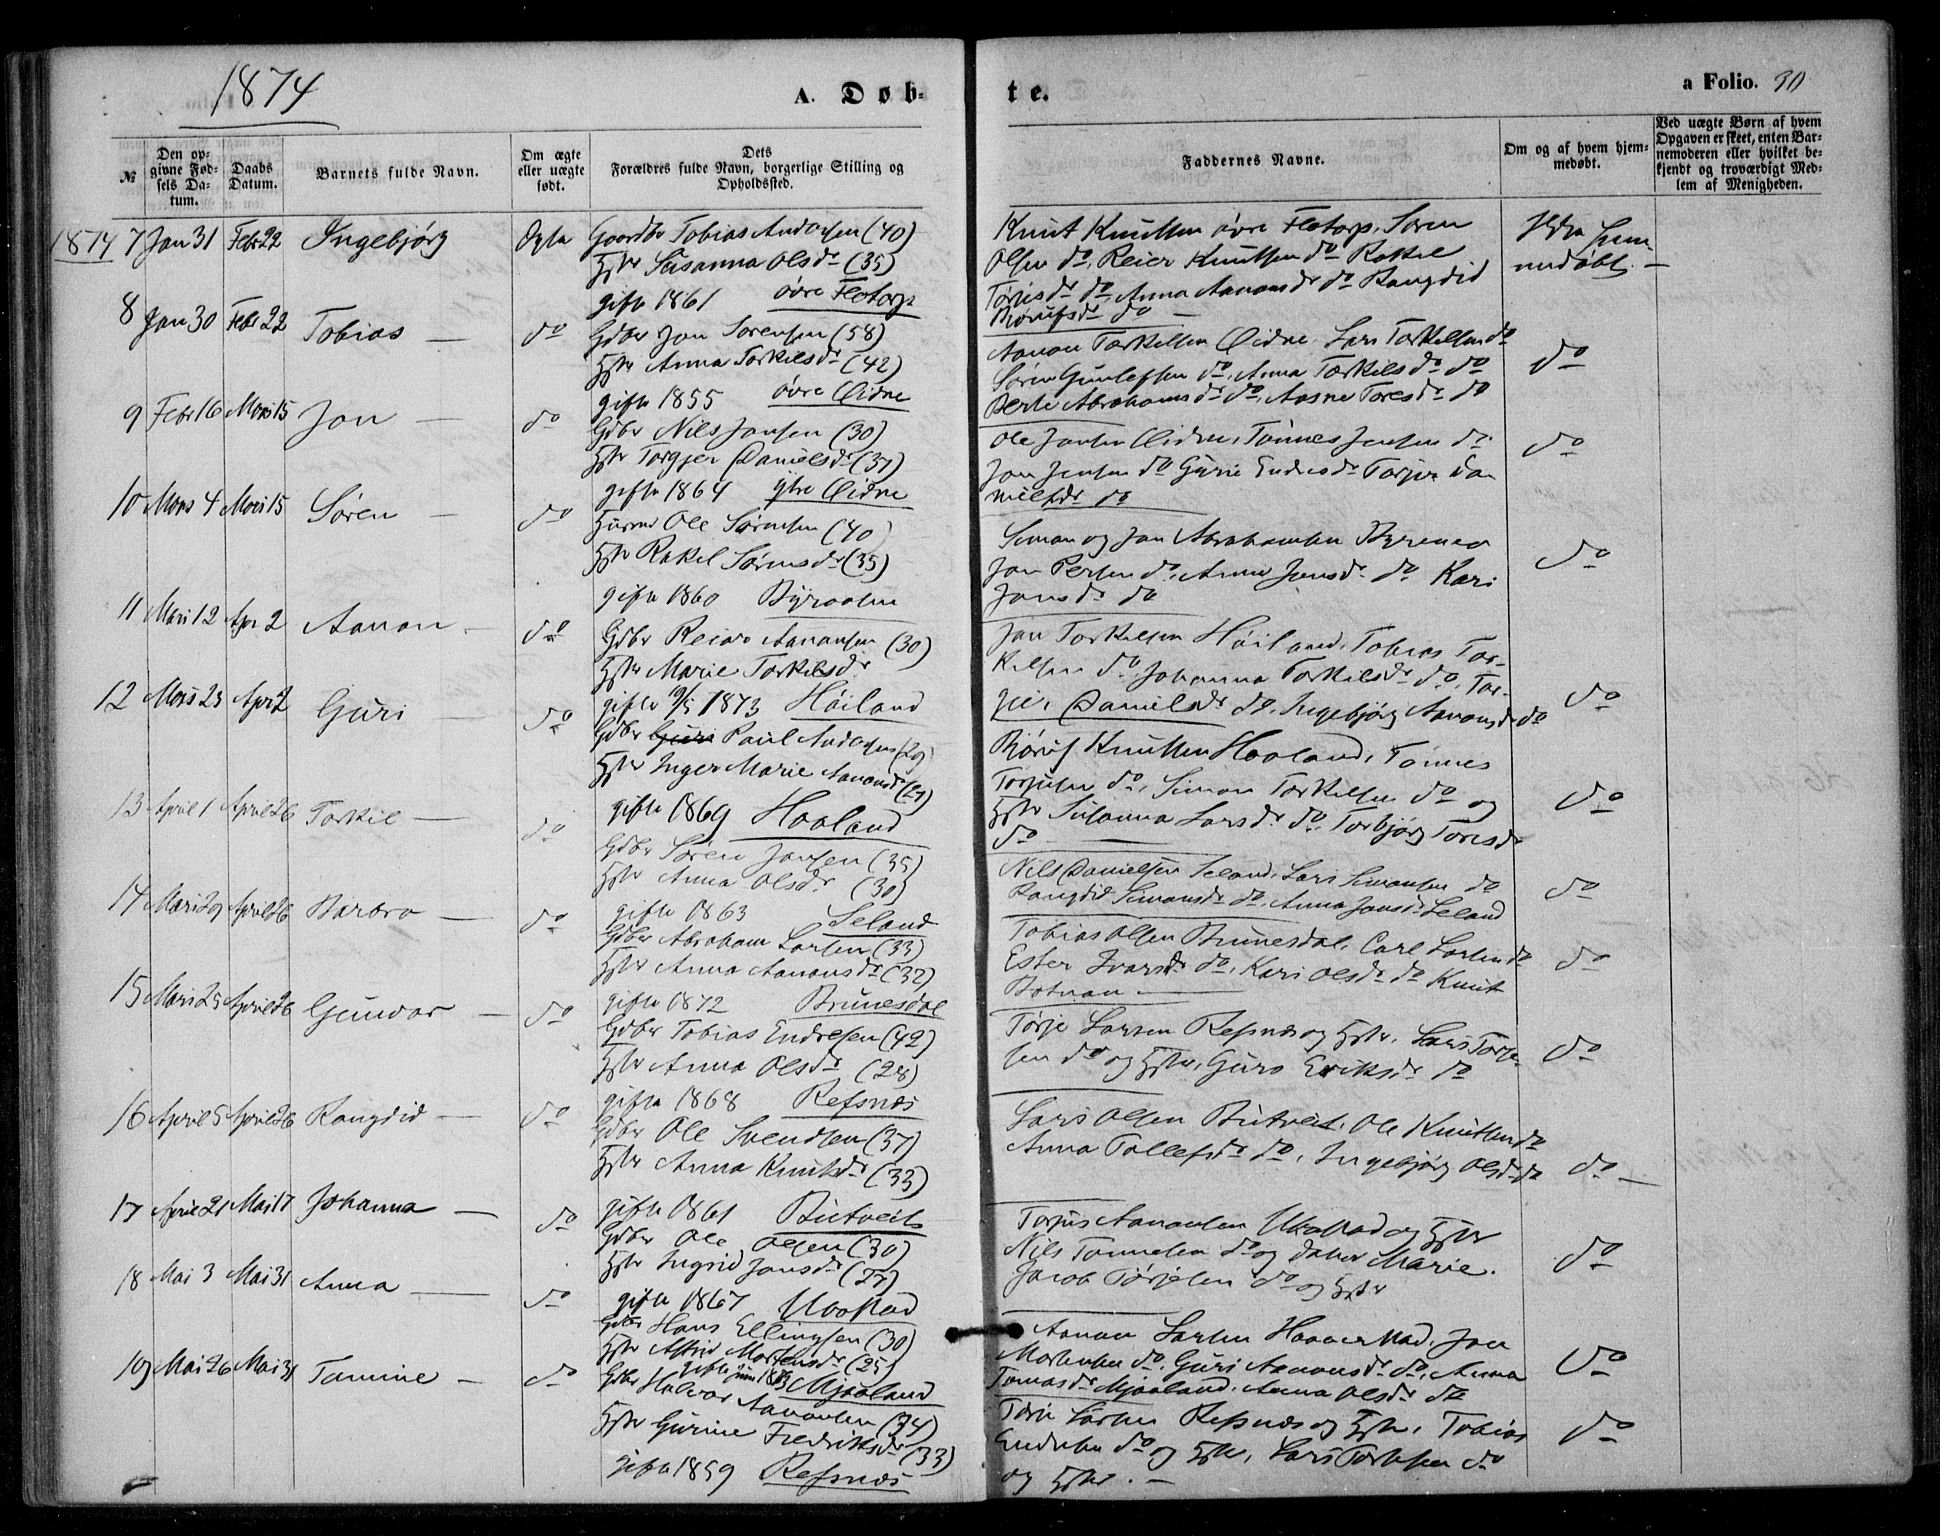 1874
A. Døb-
te.
a Folio. 30
№
Den op-
givne Fød-
sels Da-
tum.
Daabs
Datum.
Barnets fulde Navn.
Om ægte
eller uægte
født.
Dets
Forældres fulde Navn, borgerlige Stilling og
Opholdssted.
Faddernes Navne.
Om og af hvem hjem-
medøbt.
Ved uægte Børn af hvem
Opgaven er skeet, enten Bar-
nemoderen eller hvilket be-
kjendt og troværdigt Med-
lem af Menigheden.
1874 7 Jan 31 Febr 22 Ingebjørg Ægte Gaardbr Tobias Andersen (40)
Hstr Susanna Olsdr (35)
gifte 1861 øvre Flotorp
Knut Knutsen øvre Flotorp, Søren
Olsen do, Reier Knutsen do Rakel
Torjisdr do, Anna Aanonsdr do Rangdid
Bjørufsdr do
Ikke hjem-
medøbt. —
8 Jan 30 Febr 22 Tobias — do Gdbr Jon Sørensen (58)
Hstr Anna Torkelsdr (42)
gifte 1855 øvre Øidne
Aanon Torkelsen Øidne, Lars Torkelsen do
Søren Gunlefsen do, Anna Torkelsdr do
Berte Abrahamsdr do, Aasne Toresdr do
do
9 Febr 16 Mars 15 Jon — do Gdbr Nils Jonsen (30)
Hstr Torgjer Danielsdr (37)
gifte 1864 ytre Øidne
Ole Jonsen Øidne, Tønnes Jensen do
Jon Jensen do Gurie Endresdr Torjer Da
nielsdr do
do
10 Mars 4 Mars 15 Søren — do Husmd Ole Sørensen (40)
Hstr Rakel Sørensdr (35)
gifte 1860 Byraasen
Simon og Jon Abrahamsen
Jon Persen do, Anna Jonsdr do Kari
Jonsdr do
do
11 Mars 12 Apr 2 Aanon — do Gdbr Reiar Aanonsen (30)
Hstr Marie Torkelsdr
gifte 9/5 1873 Høiland
Jon Torkelsen Høiland, Tobias Tor-
kelsen do, Johanna Torkelsdr do, Tor-
gjer Danielsdr do, Ingebjørg Aanonsdr do
do
12 Mars 23 Apr 2 Guri — do Gdbr Guri Paul Andersen (29)
Hstr Inger Marie Aanonsdr (27)
gifte 1869 Haaland
Bjøruf Knutsen Haaland, Tønnes
Torjusen do, Simon Torkelsen do og
Hstr Susanna Larsdr do, Torbjørg Toresdr
do
do
13 April 1 April 26 Torkil — do Gdbr Søren Jonsen (35)
Hstr Anna Olsdr (30)
gifte 1863 Seland
Nils Danielsen Seland, Lars Simonsen do
Rangdid Simonsdr do, Anna Jonsdr Seland
do
14 Mars 29 April 26 Barbro — do Gdbr Abraham Larsen (33)
Hstr Anna Aanonsdr (32)
gifte 1872 Brunesdal
Tobias Olsen Brunesdal, Carl Larsen do
Ester Ivarsdr do, Kari Olsdr do Knut
Botnan —
do
15 Mars 25 April 26 Gunvor — do Gdbr Tobias Endresen (42)
Hstr Anna Olsdr (28)
gifte 1868 Refsnes
Tørje Larsen Refsnes og Hstr, Lars Torje-
sen do og Hstr, Guro Eriksdr do
do
16 April 5 April 26 Rangdid — do Gdbr Ole Svendsen (37)
Hstr Anna Knutsdr (33)
gifte 1861 Butveit
Lars Olsen Butveit, Ole Knutsen do
Anna Tollefsdr do, Ingebjørg Olsdr do
do —
17 April 21 Mai 17 Johanna — do Gdbr Ole Olsen (30)
Hstr Ingrid Jonsdr (27)
gifte 1867
Torjus Aanonsen og Hstr
Nils Tønnesen do og datter Marie.
Jacob Tørjesen do og Hstr
do
18 Mai 3 Mai 31 Anna — do Gdbr Hans Ellingsen (30)
Hstr Astrid Mortensdr (25)
gifte Juni 1873 Mjaaland
Aanon Larsen Haaverstad, Jon
Mortensen do, Guri Aanonsdr do, Anna
Tomasdr Mjaaland, Anna Olsdr do
do
19 Mai 26 Mai 31 Tomine — do Gdbr Halvor Aanonsen (34)
Hstr Gurine Fredriksdr (33)
gifte 1859 Refsnes
Tørje Larsen Refsnes og Hstr, Tobias
Endresen do og Hstr, Lars Torjesen do
og Hstr. —
do